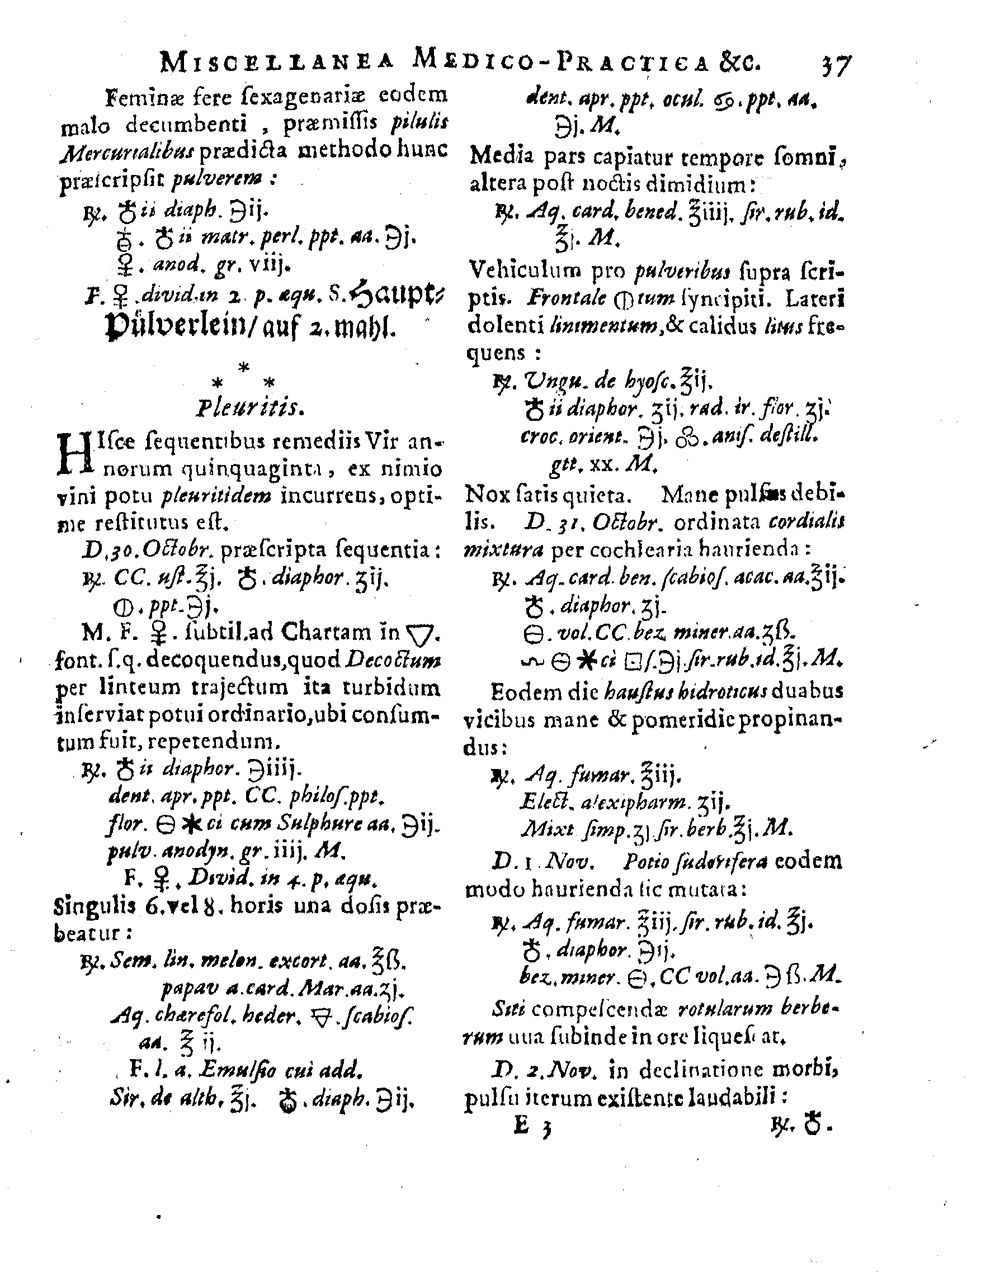 MISCELLANEA MEDICO-PRACTICA &c. 37
Feminæ fere ſexagenariæ eodem
malo decumbenti , præmiſſis pilulis
Mercurialibus prædicta methodo hunc
præſcripſit pulverem :
℞. ♁ii diaph. ℈ij.
♁. ♁ii matr. perl. ppt. aa. ℈j.
♀. anod. gr. viij.
F. ♀. divid. in 2. p. æqu. S. Haupt⸗
Pülverlein/ auf 2. mahl.
*
* *
Pleuritis.
HIſce ſequentibus remediis Vir an-
norum quinquaginta, ex nimio
vini potu pleuritidem incurrens, opti-
me reſtitutus eſt.
D. 30. Octobr. præſcripta ſequentia:
℞. CC. uſt. ℥j. ♁. diaphor. ʒij.
🜕. ppt. ℈j.
M. F. ♀. ſubtil. ad Chartam in 🜄.
font. ſ. q. decoquendus, quod Decoctum
per linteum trajectum ita turbidum
inſerviat potui ordinario, ubi conſum-
tum fuit, repetendum.
℞. ♁ii diaphor. ℈iiij.
dent. apr. ppt. CC. philoſ. ppt.
flor. 🜔 ✱ci cum Sulphure aa. ℈ij.
pulv. anodyn. gr. iiij. M.
F. ♀. Divid. in 4. p. æqu.
Singulis 6. vel 8. horis una doſis præ-
beatur :
℞. Sem. lin. melon. excort. aa. ℥ß.
papav a. card. Mar. aa. ʒj.
Aq. chærefol. heder. 🜃. ſcabioſ.
aa. ℥ ij.
F. l. a. Emulſio cui add.
Sir. de alth. ℥j. ♁. diaph. ℈ij.
dent. apr. ppt. ocul. ♋. ppt. aa.
℈j. M.
Media pars capiatur tempore ſomni,
altera poſt noctis dimidium:
℞. Aq. card. bened. ℥iiij. ſir. rub. id.
℥j. M.
Vehiculum pro pulveribus ſupra ſcri-
ptis. Frontale 🜕tum ſyncipiti. Lateri
dolenti linimentum, & calidus litus fre-
quens :
℞. Ungu. de hyoſc. ℥ij.
♁ii diaphor. ʒij. rad. ir. flor. ʒj.
croc. orient. ℈j. 🝆. aniſ. deſtill.
gtt. xx. M.
Nox ſatis quieta. Mane pulſus debi-
lis. D. 31. Octobr. ordinata cordialis
mixtura per cochlearia haurienda :
℞. Aq. card. ben. ſcabioſ. acac. aa. ℥ij.
♁. diaphor. ʒj.
🜔. vol. CC. bez. miner. aa. ʒß.
〜 🜔 ✱ci ⊡ſ. ℈j. ſir. rub. id. ℥j. M.
Eodem die hauſtus hidroticus duabus
vicibus mane & pomeridie propinan-
dus:
℞. Aq. fumar. ℥iij.
Elect. alexipharm. ʒij.
Mixt ſimp. ʒj ſir. berb. ℥j. M.
D. 1 Nov. Potio ſudorifera eodem
modo haurienda ſic mutata:
℞. Aq. fumar. ℥iij. ſir. rub. id. ℥j.
♁. diaphor. ℈ij.
bez. miner. 🜔. CC vol. aa. ℈ß. M.
Siti compeſcendæ rotularum berbe-
rum una ſubinde in ore liqueſcat.
D. 2. Nov. in declinatione morbi,
pulſu iterum exiſtente laudabili :
E 3 ℞. ♁.